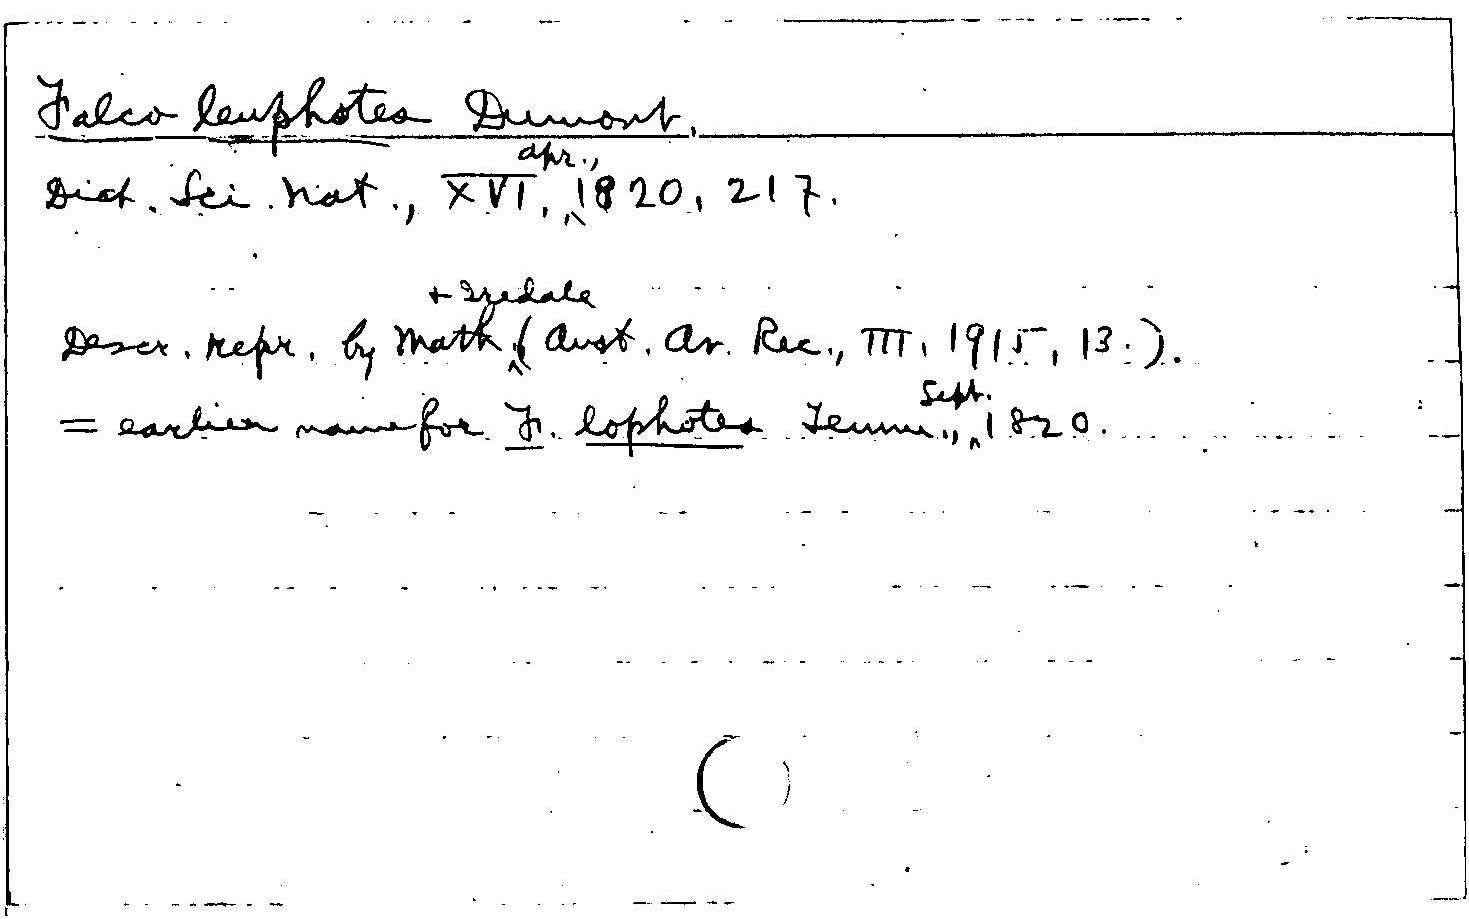 Falco leuphotes Dumont.
Dict. Sci. Nat., XVI, Apr., 1820, 217.
Descr. repr. by Math. + Iredale (Aust. Av. Rec., III, 1915, 13.).
= earlier name for F. lophotes Temm., Sept. 1820.